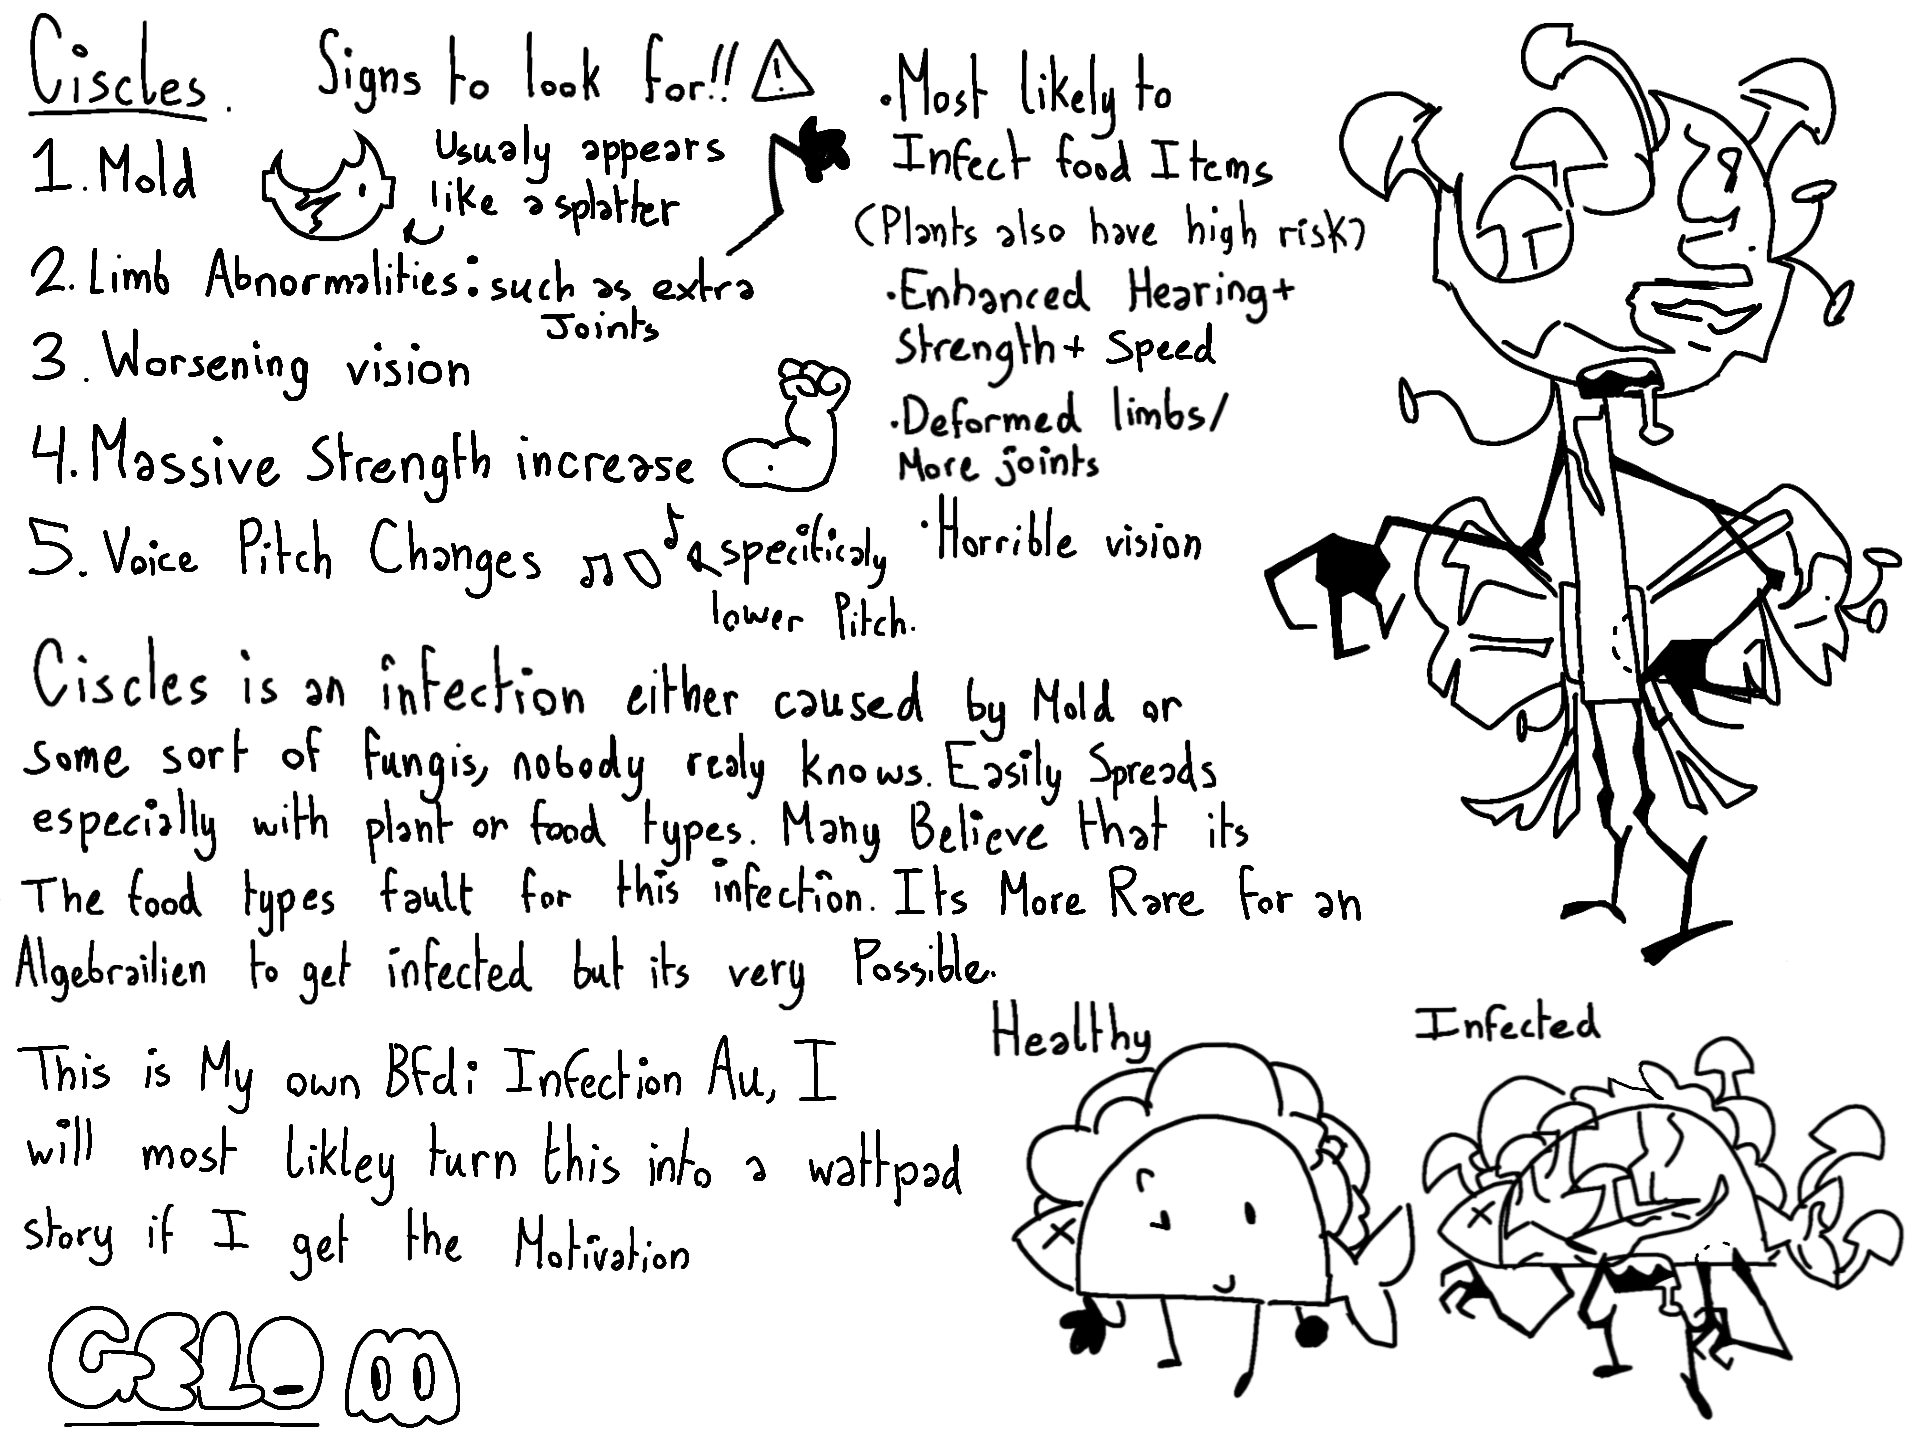 Ciscles.
Signs to look for!!
!
1. Mold
Usualy appears
like a splatter
2. Limb Abnormalities: such as extra
Joints
3. Worsening vision
4. Massive Strength increase
5. Voice Pitch Changes
specificaly
lower Pitch.
•Most likely to
Infect food Items
(Plants also have high risk)
•Enhanced Hearing+
Strength+ Speed
•Deformed limbs/
More joints
•Horrible vision
Ciscles is an infection either caused by Mold or
some sort of fungis, nobody realy knows. Easily Spreads
especially with plant or food types. Many Believe that its
The food types fault for this infection. Its More Rare for an
Algebrailien to get infected but its very Possible.
This is My own Bfdi Infection Au, I
will most likley turn this into a wattpad
story if I get the Motivation
Healthy
Infected
GELO